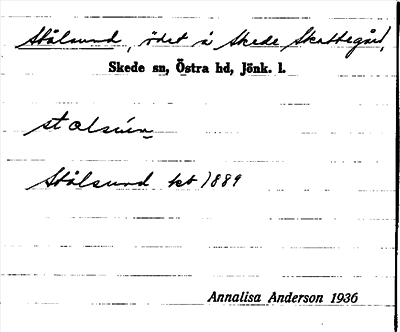 Stålsund, ödet å Skede Skattegård,
Skede sn, Östra hd, Jönk. l.
stalsún
Stålsund kb 1889
Annalisa Anderson 1936